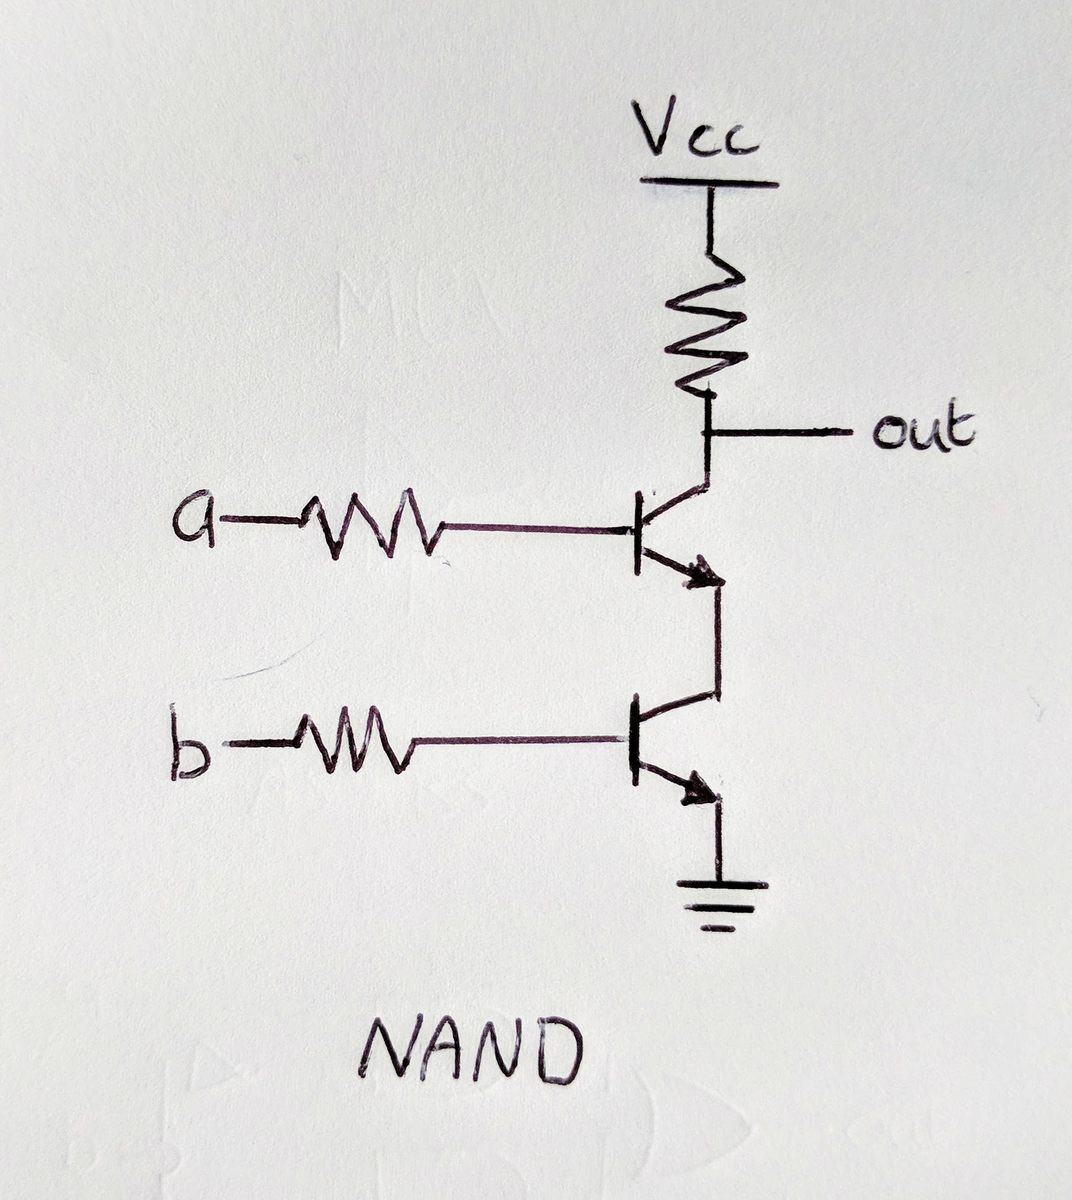 Vcc
out
a
b
NAND